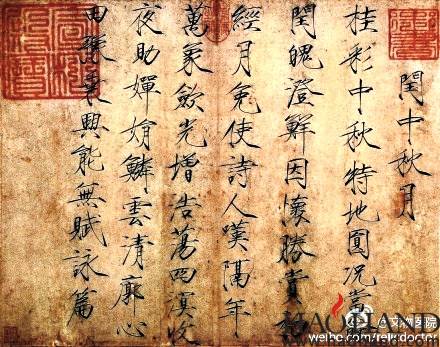 閏中秋月
桂彩中秋特地圓況當
閏魄澄鮮因懷勝賞初
經月免使詩人嘆隔年
萬象斂光增浩蕩四溟收
夜助嬋娟鱗雲清廓心
田豫乘興能無賦詠篇
@文物医院
weibo.com/relicdoctor